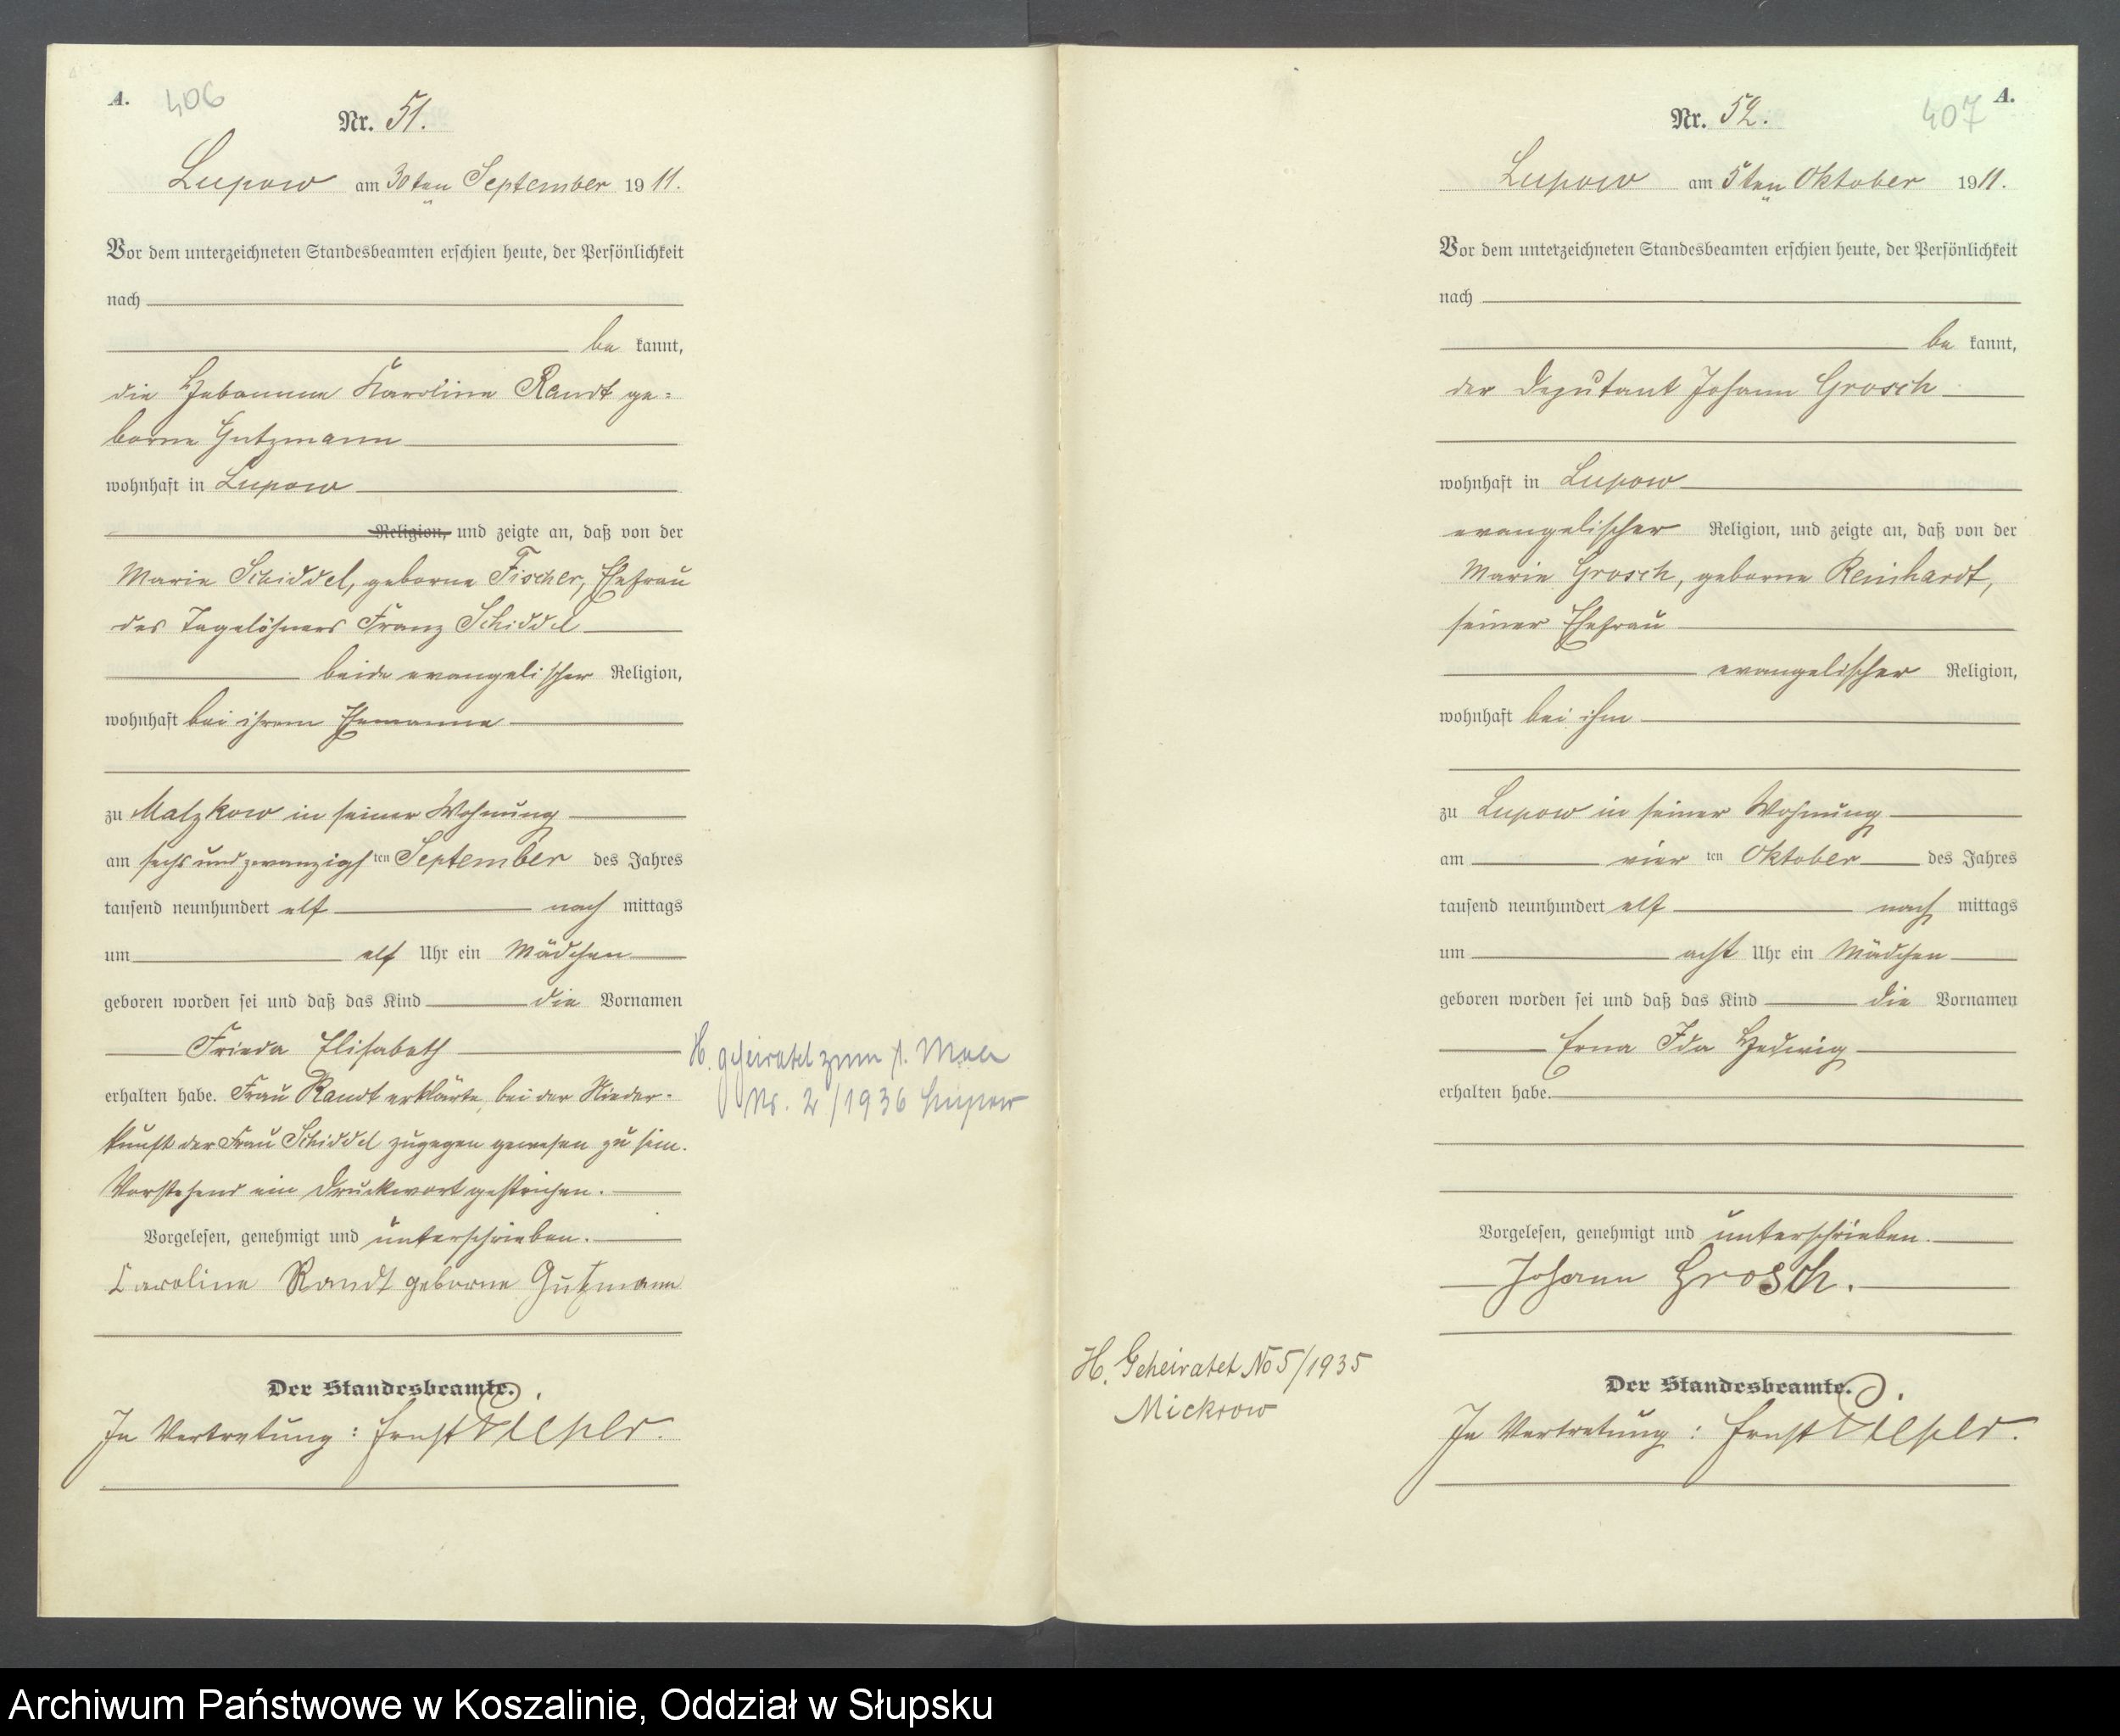 A. 406
Nr. 51.
Lupow am 30ten September 1911.
Vor dem unterzeichneten Standesbeamten erschien heute, der Persönlichkeit
nach
be kannt,
die Hebamme Karoline Randt ge=
borne Gutzmann
wohnhaft in Lupow
Religion, und zeigte an, daß von der
Marie Schiddel, geborne Fischer, Ehefrau
des Tagelöhners Franz Schiddel
beide evangelischer Religion,
wohnhaft bei ihrem Ehemanne
zu Malzkow in seiner Wohnung
am sechsundzwanzigsten September des Jahres
tausend neunhundert elf nach mittags
um elf Uhr ein Mädchen
geboren worden sei und daß das Kind die Vornamen
Frieda Elisabeth
erhalten habe. Frau Randt erklärte, bei der Nieder-
kunft der Frau Schiddel zugegen gewesen zu sein.
Vorstehend ein Druckwort gestrichen.
Vorgelesen, genehmigt und unterschrieben.
Caroline Randt geborne Gutzmann
Der Standesbeamte.
In Vertretung: Ernst
H. geheiratet zum 1. Male
Nr. 2/1936 Lupow
A. 407
Nr. 52.
Lupow am 5ten Oktober 1911.
Vor dem unterzeichneten Standesbeamten erschien heute, der Persönlichkeit
nach
be kannt,
der Deputant Johann Grosch
wohnhaft in Lupow
evangelischer Religion, und zeigte an, daß von der
Marie Grosch, geborne Reinhardt,
seiner Ehefrau
evangelischer Religion,
wohnhaft bei ihm
zu Lupow in seiner Wohnung
am vierten Oktober des Jahres
tausend neunhundert elf nach mittags
um acht Uhr ein Mädchen
geboren worden sei und daß das Kind die Vornamen
Erna Ida Hedwig
erhalten habe.
Vorgelesen, genehmigt und unterschrieben.
Johann Grosch.
Der Standesbeamte.
In Vertretung: Ernst
H. Geheiratet No 5/1935
Mickrow
Archiwum Państwowe w Koszalinie, Oddział w Słupsku